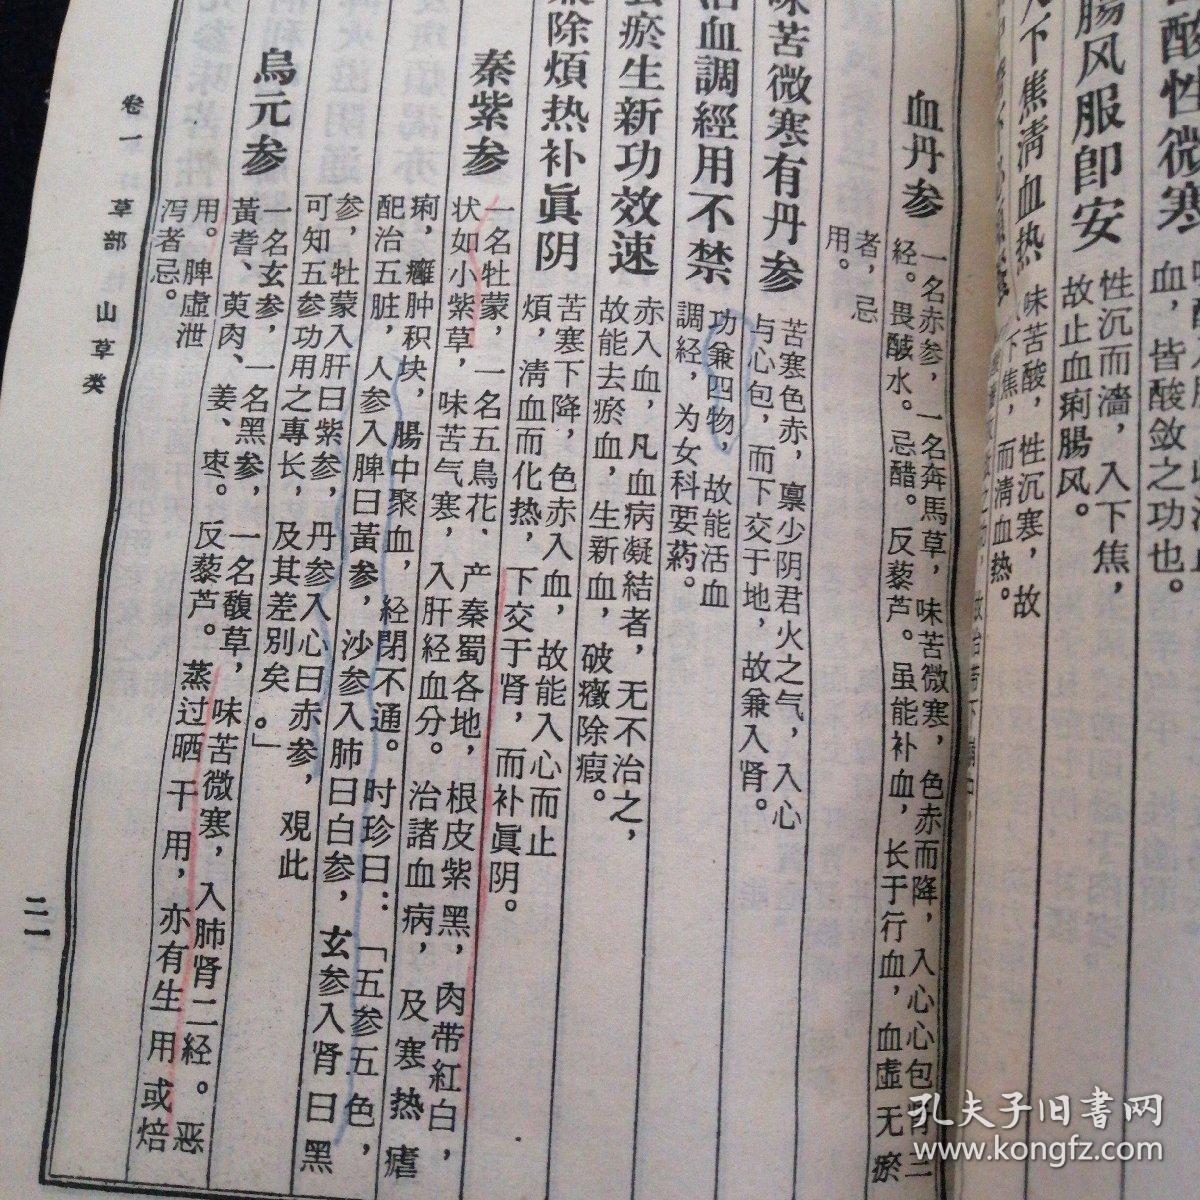 酸性微寒
血，皆酸敛之功也。
腸风服卽安
性沉而濇，入下焦，
故止血痢腸风。
下焦淸血热
味苦酸，性沉寒，故
入下焦，而淸血热。
血丹参
一名赤参，一名奔馬草，味苦微寒，色赤而降，入心心包
経。畏醎水。忌醋。反藜芦。虽能补血，长于行血，血虛无瘀
者，忌
用。
味苦微寒有丹参
苦寒色赤，禀少阴君火之气，入心
与心包，而下交于地，故兼入肾。
活血調經用不禁
功兼四物，故能活血
調经，为女科要药。
去瘀生新功效速
赤入血，凡血病凝結者，无不治之，
故能去瘀血，生新血，破癥除瘕。
除煩热补眞阴
苦寒下降，色赤入血，故能入心而止
煩，淸血而化热，下交于肾，而补眞阴。
秦紫参
一名牡蒙，一名五鳥花，产秦蜀各地，根皮紫黑，肉带紅白，
状如小紫草，味苦气寒，入肝経血分。治諸血病，及寒热瘧
痢，癰肿积块，腸中聚血，経閉不通。时珍曰：「五参五色，
配治五脏，人参入脾曰黃参，沙参入肺曰白参，玄参入肾曰黑
参，牡蒙入肝曰紫参，丹参入心曰赤参，观此
可知五参功用之專长，及其差別矣。」
烏元参
一名玄参，一名黑参，一名馥草，味苦微寒，入肺肾二経。恶
黃耆、萸肉、姜、枣。反藜芦。蒸过晒干用，亦有生用或焙
用。脾虛泄
泻者忌。
卷一 草部 山草类
二一
孔夫子旧书网
www.kongfz.com